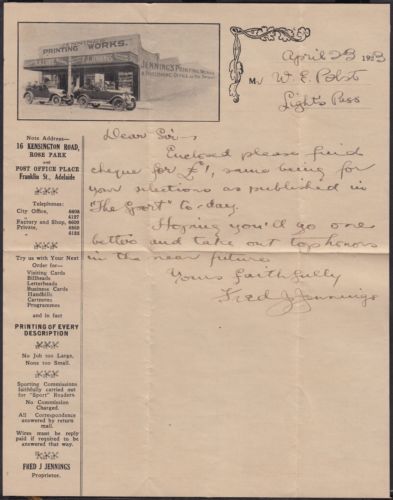 JENNINGS
PRINTING WORKS.
JENNING'S PRINTING WORKS
& PUBLISHING OFFICE
April 23 1923
Mr W. E. Pobst
Light's Pass
Dear Sir -
Enclosed please find
cheque for £1, same being for
your selections as published in
"The Sport" to-day.
Hoping you'll go one
better and take out top honors
in the near future
Yours faithfully
Fred J Jennings
Note Address—
16 KENSINGTON ROAD,
ROSE PARK
and
POST OFFICE PLACE
Franklin St., Adelaide
Telephones:
City Office, 6608
6127
Factory and Shop, 6609
Private, 6860
6128
Try us with Your Next
Order for—
Visiting Cards
Billheads
Letterheads
Business Cards
Handbills
Cartoons
Programmes
and in fact
PRINTING OF EVERY
DESCRIPTION
No Job too Large,
None too Small.
Sporting Commissions
faithfully carried out
for "Sport" Readers
No Commission
Charged.
All Correspondence
answered by return
mail.
Wires must be reply
paid if required to be
answered that way.
FRED J JENNINGS
Proprietor.